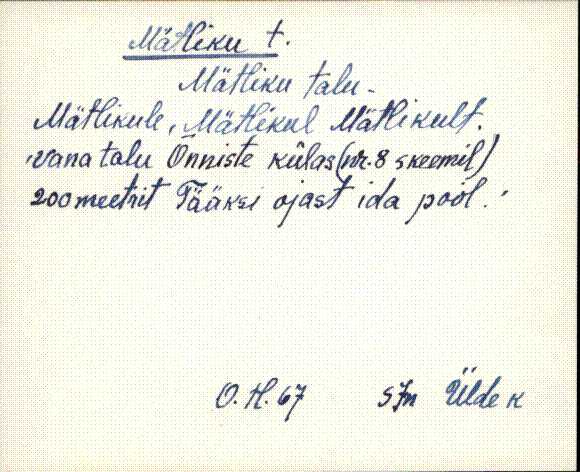 Mätliku t.
Mätliku talu.
Mätlikule, Mätlikul Mätlikult.
vana talu Õnniste külas (nr. 8 skeemil)
200 meetrit Tääksi ojast ida pool.
O. H. 67 SJn Ülde k